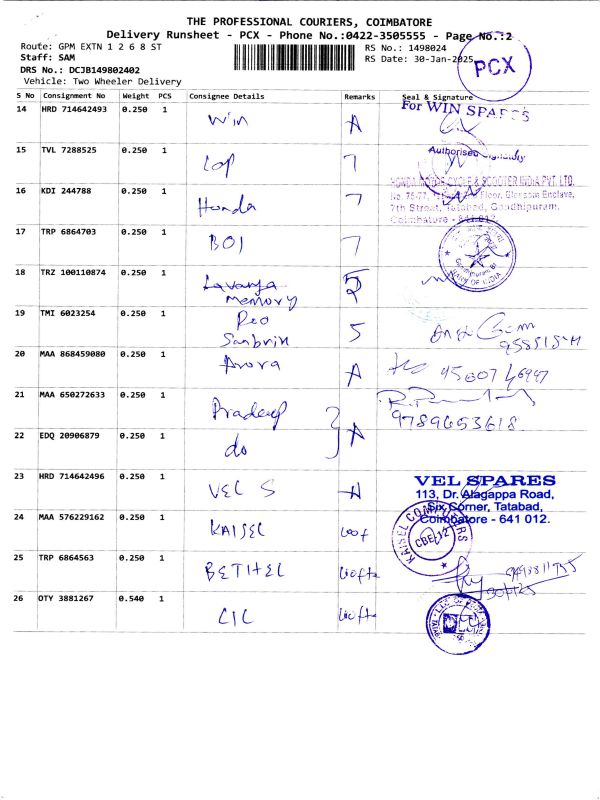 THE PROFESSIONAL COURIERS, COIMBATORE
Delivery Runsheet - PCX - Phone No.:0422-3505555 - Page No.:2
Route: GPM EXTN 1 2 6 8 ST
RS No.: 1498024
Staff: SAM
RS Date: 30-Jan-2025
PCX
DRS No.: DCJB149802402
Vehicle: Two Wheeler Delivery
S No Consignment No Weight PCS Consignee Details Remarks Seal & Signature
14 HRD 714642493 0.250 1 Win A For WIN SPARES
Authorised Signatory
15 TVL 7288525 0.250 1 7
HONDA MOTORCYCLE & SCOOTER INDIA PVT. LTD.
16 KDI 244788 0.250 1 Honda 7
Floor, Glossom Enclave,
7th Street, Tatabad, Gandhipuram,
Coimbatore - 641 012.
17 TRP 6864703 0.250 1 BOI 7
BANK OF INDIA
18 TRZ 100110874 0.250 1 Lavanya
Memory
19 TMI 6023254 0.250 1 5
20 MAA 868459080 0.250 1 Arora A
21 MAA 650272633 0.250 1 Pradeep
9789653618
22 EDQ 20906879 0.250 1 do A
23 HRD 714642496 0.250 1 VEL S A
VEL SPARES
113, Dr. Alagappa Road,
Six Corner, Tatabad,
Coimbatore - 641 012.
24 MAA 576229162 0.250 1 KAISEL
KAISEL COMPUTERS
CBE-12
25 TRP 6864563 0.250 1 BETHEL
26 OTY 3881267 0.540 1 CIC